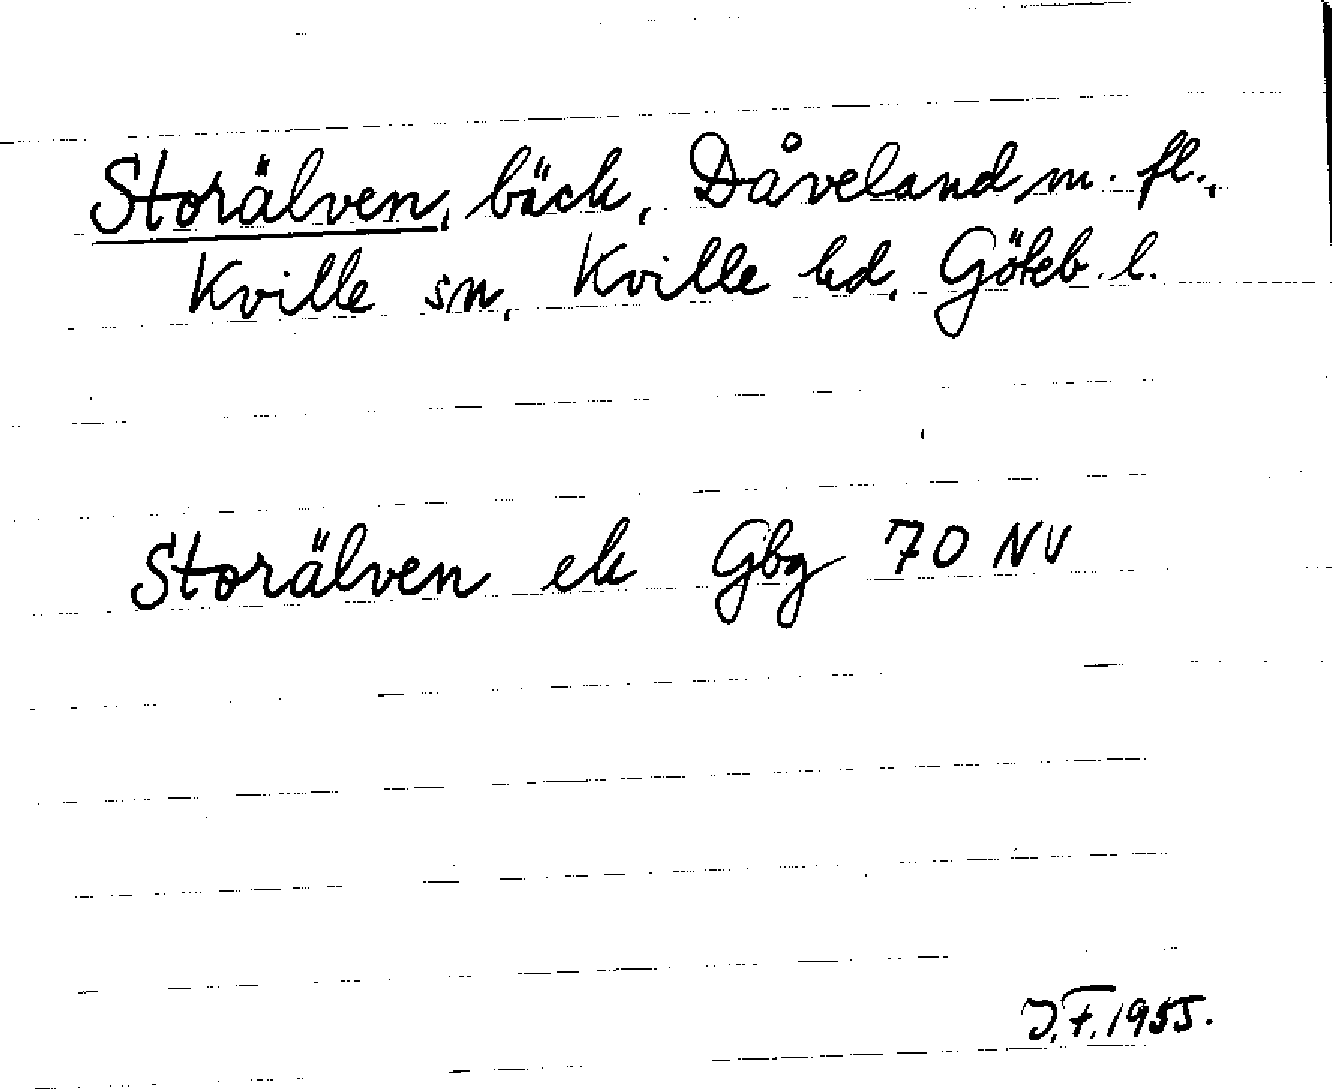 Storälven, bäck, Dåveland m. fl.,
Kville sn, Kville hd, Göteb. l.
Storälven ek Gbg 70 NV
J.F. 1955.